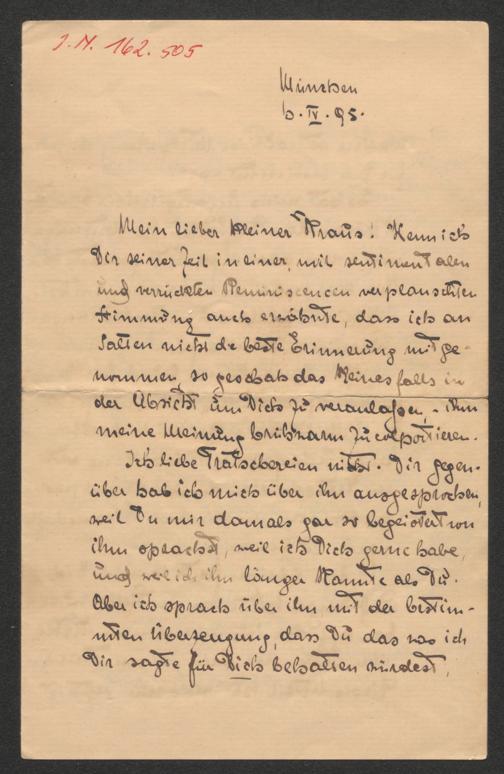 J.N. 162.505
München
6. IV. 95.
Mein lieber kleiner Kraus! Wenn ich
Dir seiner Zeit in einer, mit sentimentalen
und verrückten Reminiscencen verplauschten
Stimmung auch erzählte, dass ich an
Salten nicht die beste Erinnerung mitge-
nommen, so geschah das keinesfalls in
der Absicht um Dich zu veranlaßen, ihm
meine Meinung brühwarm zu colportieren.
Ich liebe Tratschereien nicht. Dir gegen-
über hab ich mich über ihn ausgesprochen,
weil Du mir damals gar so begeistert von
ihm sprachst, weil ich Dich gerne habe,
und weil ich ihn länger kannte als Du.
Aber ich sprach über ihn mit der bestim-
mten Überzeugung, dass Du das was ich
Dir sagte für Dich behalten würdest,